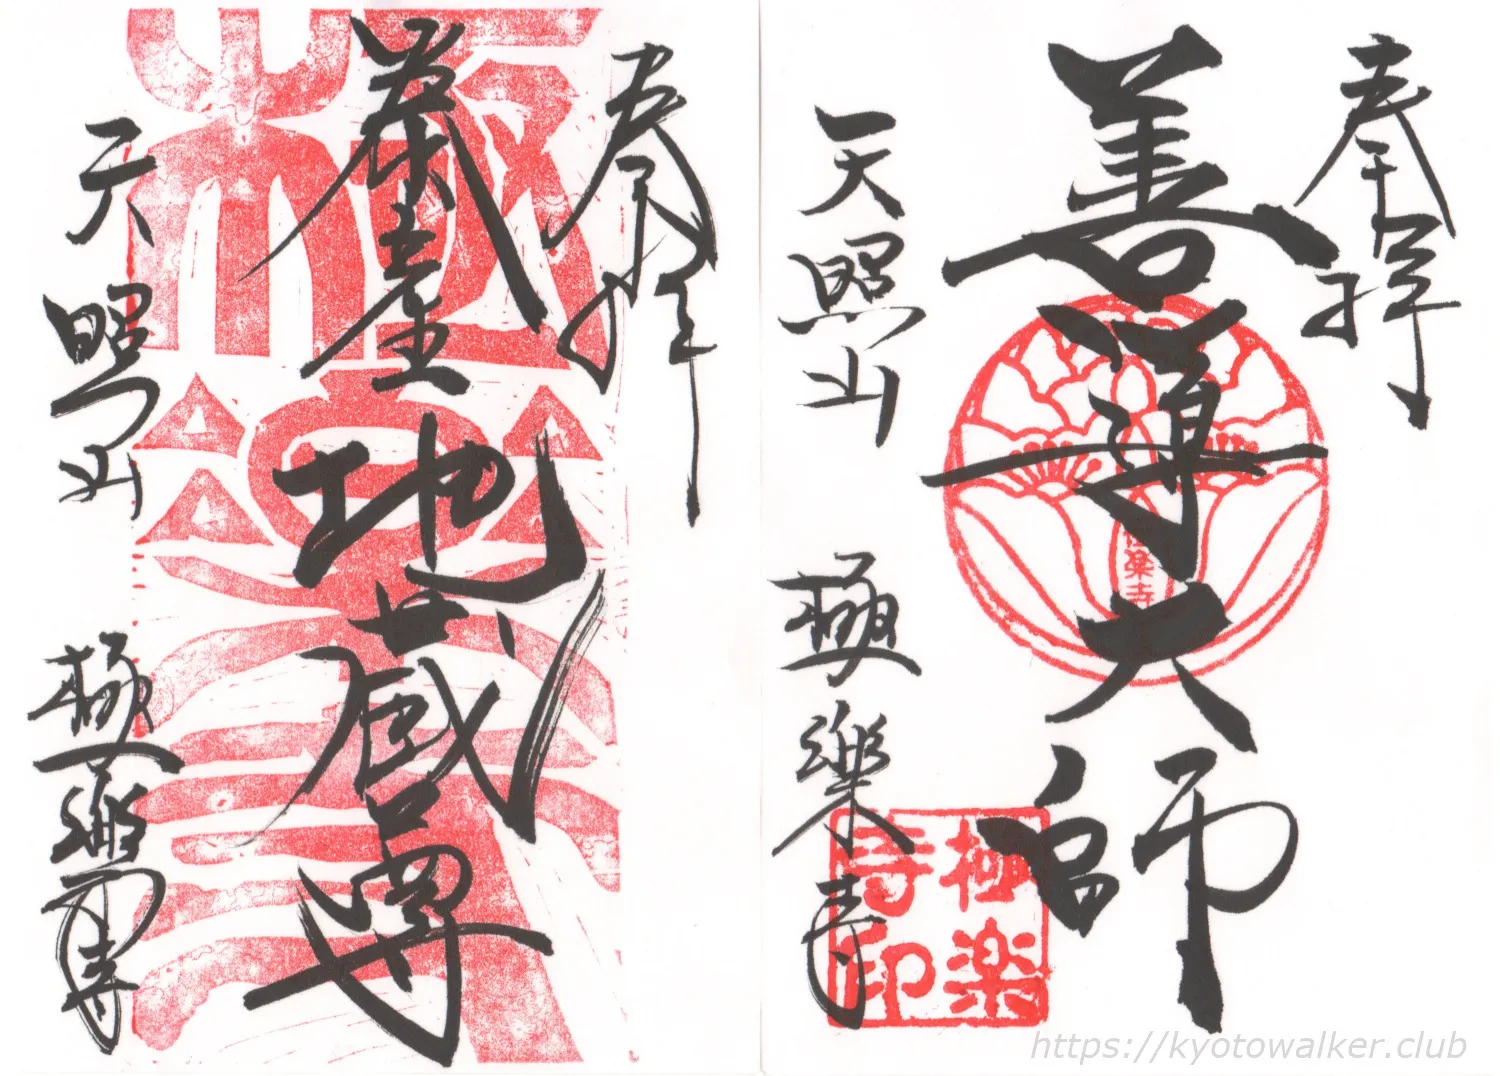 奉拝
善導大師
極楽寺
天照山 極樂寺
極楽
寺印
奉拝
地蔵尊
天照山 極樂寺
https://kyotowalker.club